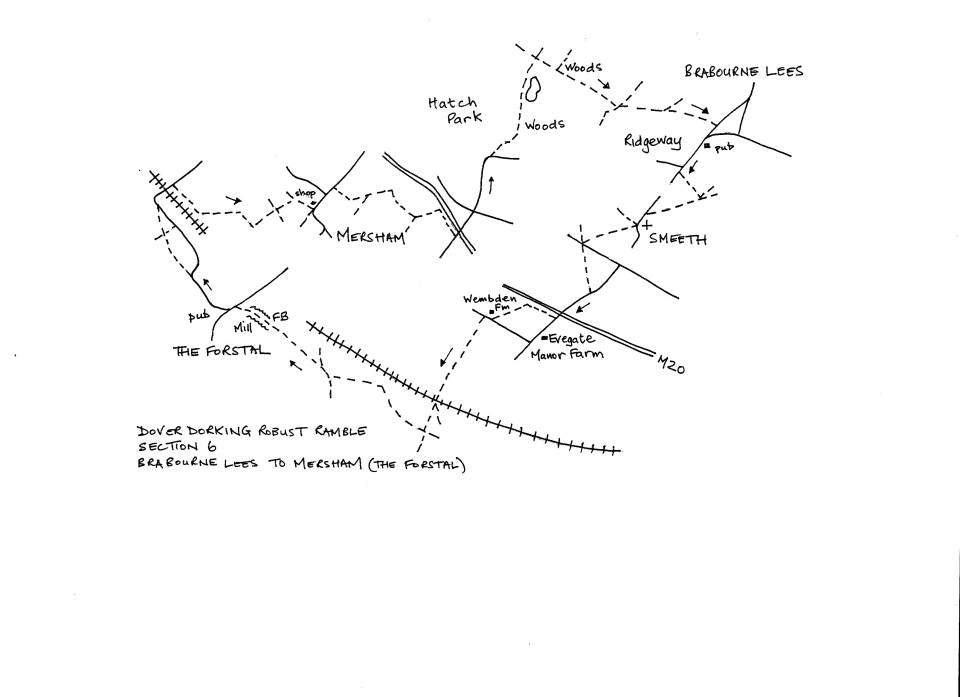 Woods
BRABOURNE LEES
Hatch
Park
Woods
Ridgeway
pub
shop
MERSHAM
SMEETH
Wembden
Fm
pub
Mill
FB
THE FORSTAL
Evegate
Manor Farm
M20
DOVER DORKING ROBUST RAMBLE
SECTION 6
BRABOURNE LEES TO MERSHAM (THE FORSTAL)